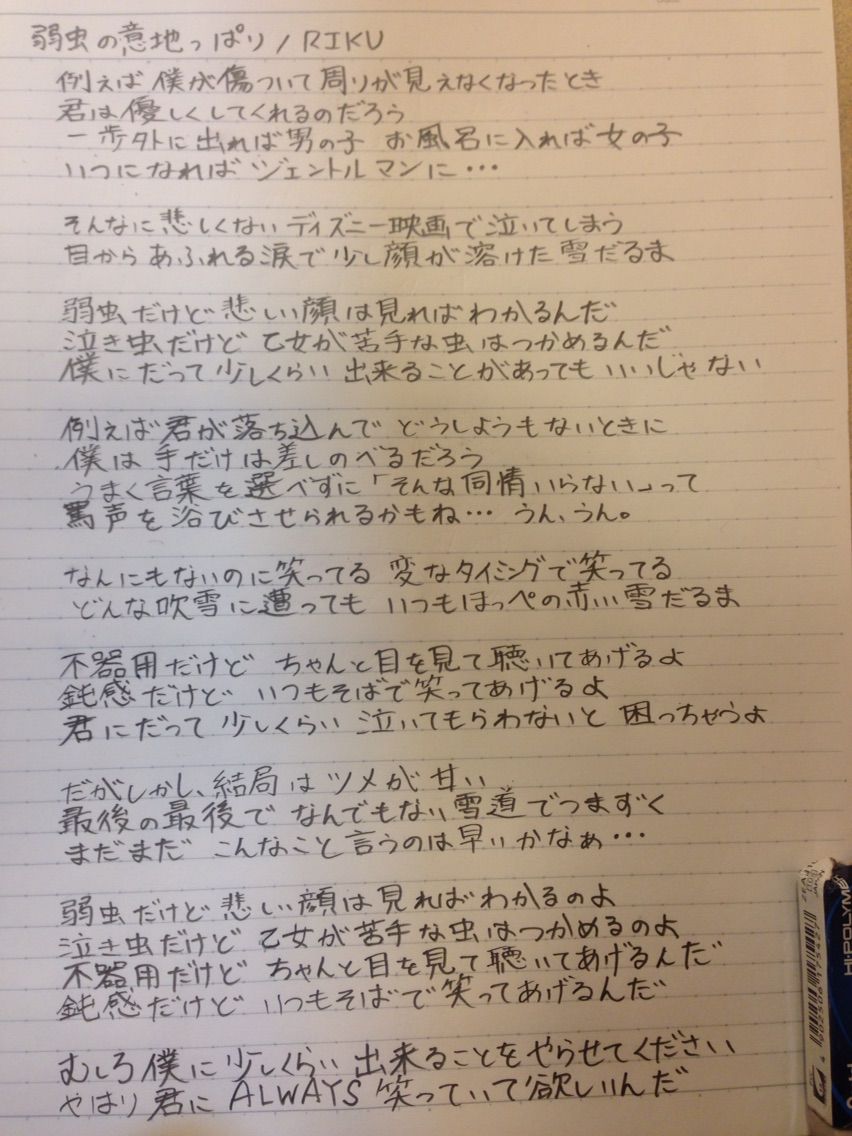 弱虫の意地っぱり / RIKU
例えば僕が傷ついて周りが見えなくなったとき
君は優しくしてくれるのだろう
一歩外に出れば男の子 お風呂に入れば女の子
いつになればジェントルマンに・・・
そんなに悲しくないディズニー映画で泣いてしまう
目からあふれる涙で少し顔が溶けた雪だるま
弱虫だけど悲しい顔は見ればわかるんだ
泣き虫だけど乙女が苦手な虫はつかめるんだ
僕にだって少しくらい出来ることがあってもいいじゃない
例えば君が落ち込んでどうしようもないときに
僕は手だけは差しのべるだろう
うまく言葉を選べずに「そんな同情いらない」って
罵声を浴びさせられるかもね・・・ うん、うん。
なんにもないのに笑ってる 変なタイミングで笑ってる
どんな吹雪に遭っても いつもほっぺの赤い雪だるま
不器用だけど ちゃんと目を見て聴いてあげるよ
鈍感だけど いつもそばで笑ってあげるよ
君にだって少しくらい泣いてもらわないと困っちゃうよ
だがしかし、結局はツメが甘い
最後の最後でなんでもない雪道でつまずく
まだまだ こんなこと言うのは早いかなぁ・・・
弱虫だけど悲しい顔は見ればわかるのよ
泣き虫だけど乙女が苦手な虫はつかめるのよ
不器用だけど ちゃんと目を見て聴いてあげるんだ
鈍感だけど いつもそばで笑ってあげるんだ
むしろ僕に少しくらい出来ることをやらせてください
やはり君に ALWAYS 笑っていて欲しいんだ
HI-POLYM